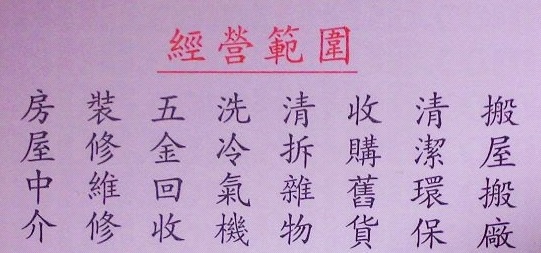 經營範圍
搬屋搬廠
清潔環保
收購舊貨
清拆雜物
洗冷氣機
五金回收
裝修維修
房屋中介